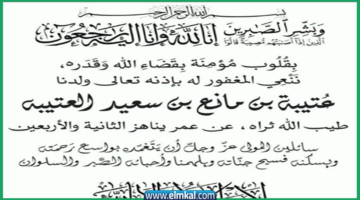 بسم الله الرحمن الرحيم
وبشر الصابرين الذين إذا أصابتهم مصيبة قالوا إنا لله وإنا إليه راجعون
بقلوب مؤمنة بقضاء الله وقدره،
ننعي المغفور له بإذنه تعالى ولدنا
عُتيبة بن مانع بن سعيد العتيبة
طيب الله ثراه، عن عمر يناهز الثانية والأربعين
سائلين المولى عز وجل أن يتغمده بواسع رحمته
ويسكنه فسيح جناته ويلهمنا وأحبائه الصبر والسلوان
www.elmkal.com